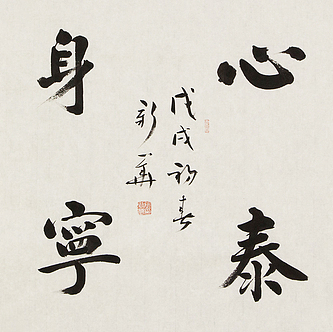 心泰
身寧
戊戌初春
新華